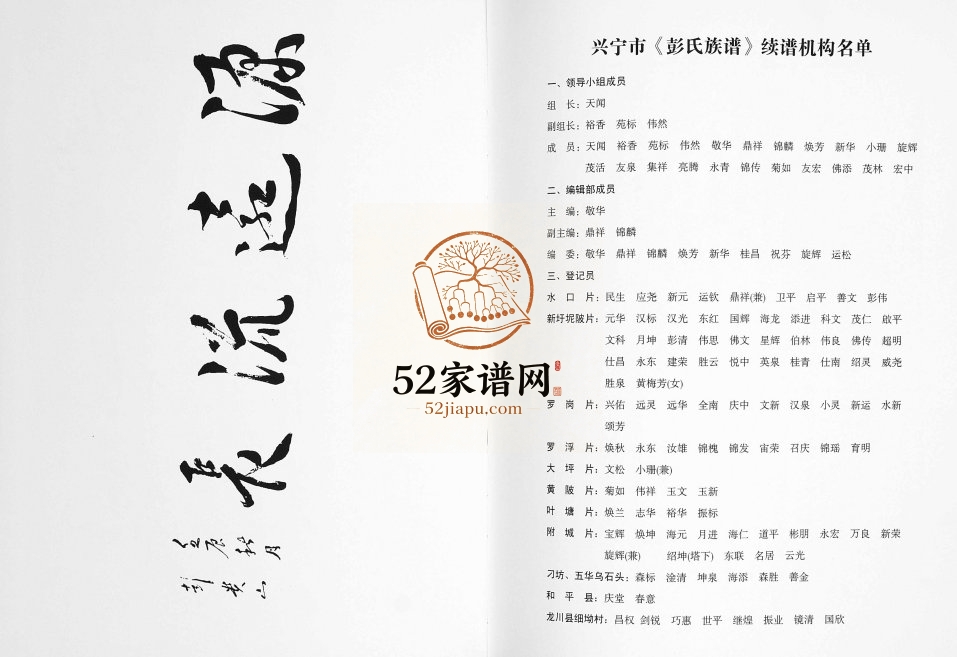 源
遠
流
長
兴宁市《彭氏族谱》续谱机构名单
一、领导小组成员
组 长：天闻
副组长：裕香 苑标 伟然
成 员：天闻 裕香 苑标 伟然 敬华 鼎祥 锦麟 焕芳 新华 小珊 旋辉
茂活 友泉 集祥 亮腾 永青 锦传 菊如 友宏 佛添 茂林 宏中
二、编辑部成员
主 编：敬华
副主编：鼎祥 锦麟
编 委：敬华 鼎祥 锦麟 焕芳 新华 桂昌 祝芬 旋辉 运松
三、登记员
水 口 片：民生 应尧 新元 运钦 鼎祥(兼) 卫平 启平 善文 彭伟
新圩坭陂片：元华 汉标 汉光 东红 国辉 海龙 添进 科文 茂仁 啟平
文科 月坤 彭清 伟思 佛文 星辉 伯林 伟良 佛传 超明
仕昌 永东 建荣 胜云 悦中 英泉 桂青 仕南 绍灵 威尧
胜泉 黄梅芳(女)
罗 岗 片：兴佑 远灵 远华 全南 庆中 文新 汉泉 小灵 新运 水新
颂芳
罗 浮 片：焕秋 永东 汝雄 锦槐 锦发 宙荣 召庆 锦瑶 育明
大 坪 片：文松 小珊(兼)
黄 陂 片：菊如 伟祥 玉文 玉新
叶 塘 片：焕兰 志华 裕华 振标
附 城 片：宝辉 焕坤 海元 月进 海仁 道平 彬朋 永宏 万良 新荣
旋辉(兼) 绍坤(塔下) 东联 名居 云光
刁坊、五华乌石头：森标 淦清 坤泉 海添 森胜 善金
和 平 县：庆堂 春意
龙川县细坳村：昌权 剑锐 巧惠 世平 继煌 振业 镜清 国欣
52家谱网
52jiapu.com